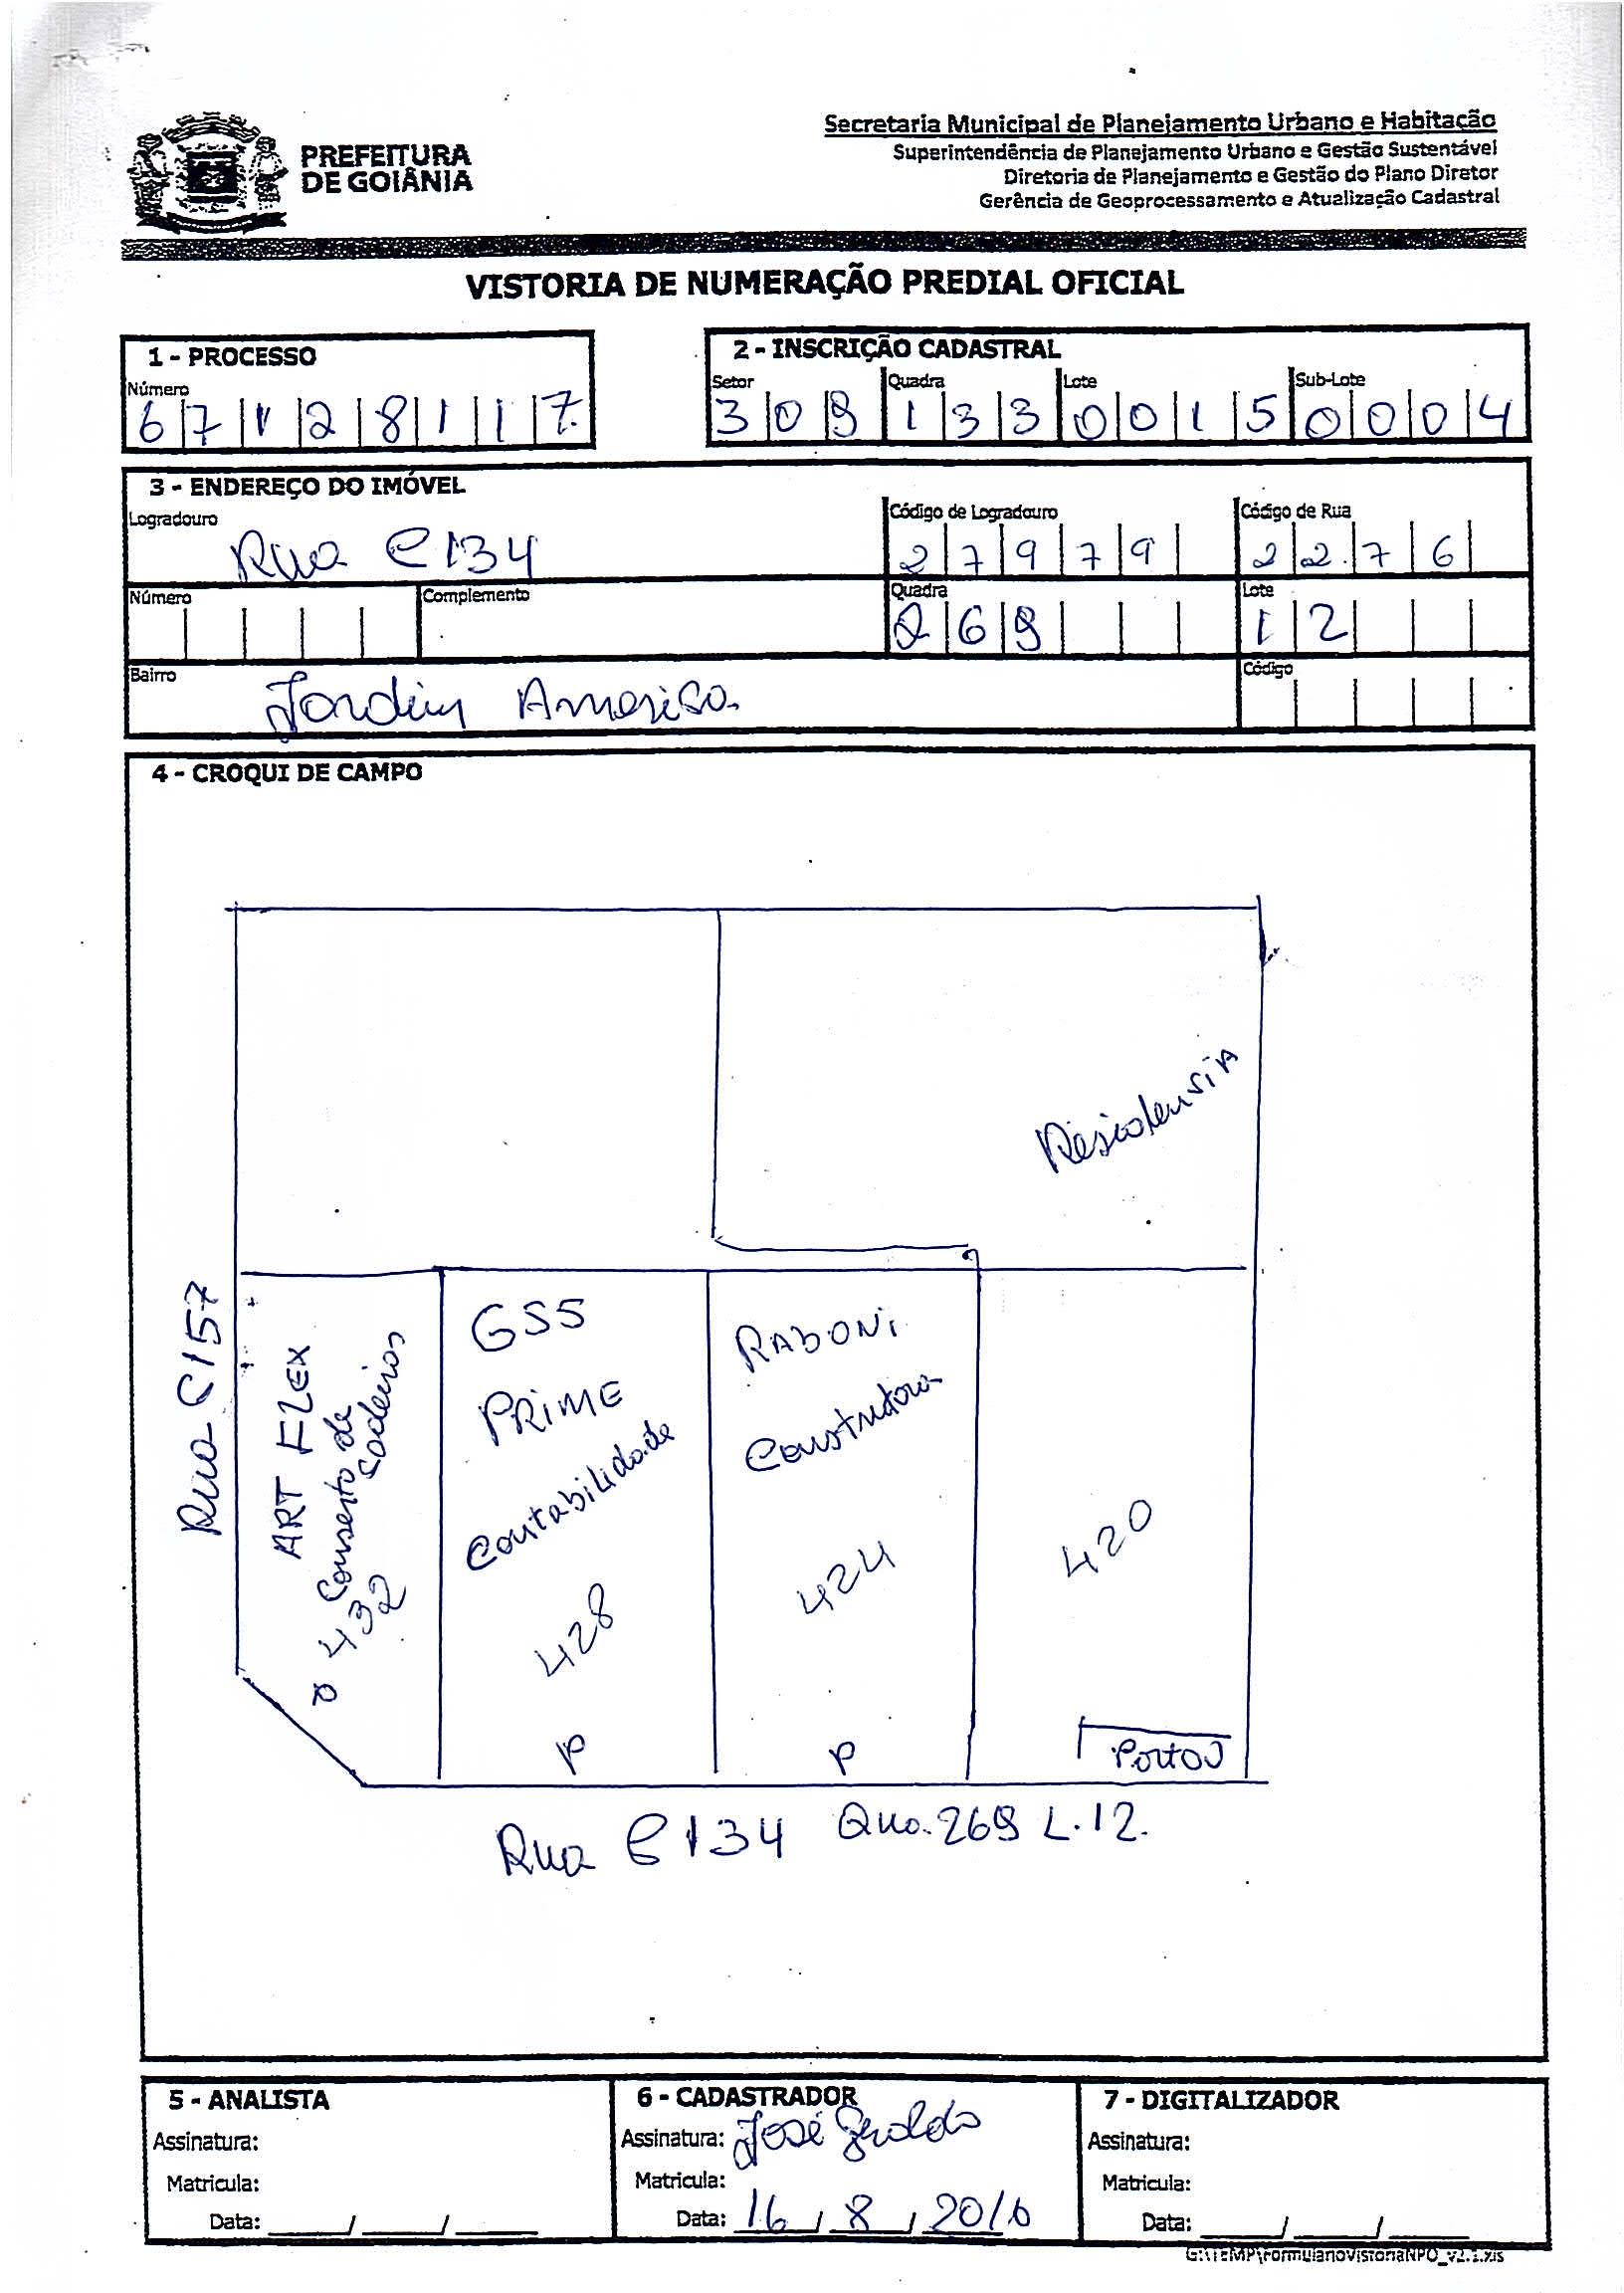 PREFEITURA
DE GOIÂNIA
Secretaria Municipal de Planejamento Urbano e Habitação
Superintendência de Planejamento Urbano e Gestão Sustentável
Diretoria de Planejamento e Gestão do Plano Diretor
Gerência de Geoprocessamento e Atualização Cadastral
VISTORIA DE NUMERAÇÃO PREDIAL OFICIAL
1 - PROCESSO
Número
6 7 1 2 8 1 1 7
2 - INSCRIÇÃO CADASTRAL
Setor Quadra Lote Sub-Lote
3 0 9 1 3 3 0 0 1 5 0 0 0 4
3 - ENDEREÇO DO IMÓVEL
Logradouro Código de Logradouro Código de Rua
Rua C134 2 7 9 7 9 2 2 7 6
Número Complemento Quadra Lote
2 6 9 1 2
Bairro Código
Jardim America
4 - CROQUI DE CAMPO
Residencia
Rua C157
ART FLEX
Conserto de
cadeiras
432
GS5
PRIME
Contabilidade
428
P
RABONI
Construtora
424
P
420
Portão
Rua C134 Qua. 269 L.12.
5 - ANALISTA
Assinatura:
Matricula:
Data: ____/____/____
6 - CADASTRADOR
Assinatura: José Geraldo
Matricula:
Data: 16/8/2016
7 - DIGITALIZADOR
Assinatura:
Matricula:
Data: ____/____/____
G:\TEMP\FormularioVistoriaNPO_v2.1.xls